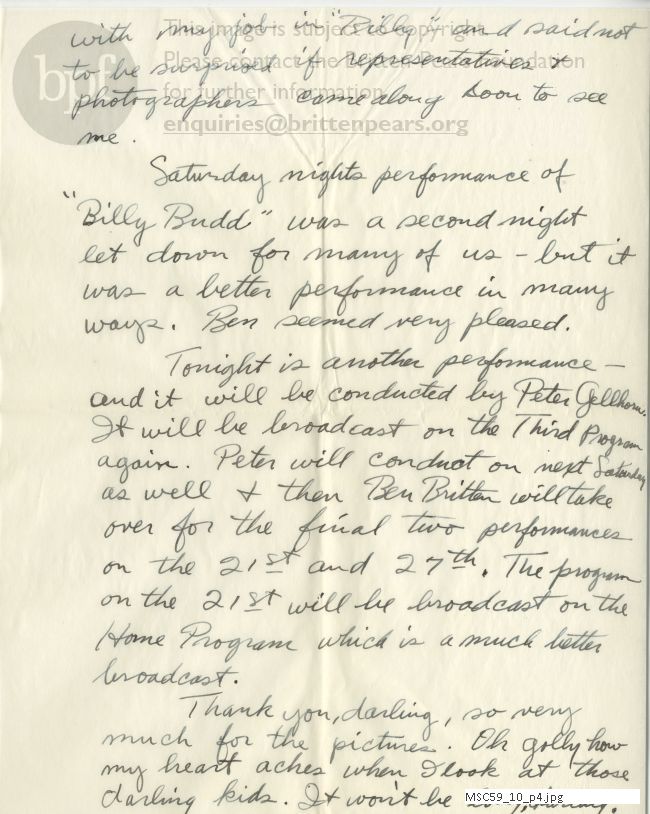 with my job in "Billy" and said not
to be surprised if representatives &
photographers came along soon to see
me.
Saturday nights performance of
"Billy Budd" was a second night
let down for many of us - but it
was a better performance in many
ways. Ben seemed very pleased.
Tonight is another performance -
and it will be conducted by Peter Gellhorn.
It will be broadcast on the Third Program
again. Peter will conduct on next Saturday
as well & then Ben Britten will take
over for the final two performances
on the 21st and 27th. The program
on the 21st will be broadcast on the
Home Program which is a much better
broadcast.
Thank you, darling, so very
much for the pictures. Oh golly how
my heart aches when I look at those
darling kids. It won't be
bpf
This image is subject to copyright
Please contact the Britten-Pears Foundation
for further information
enquiries@brittenpears.org
MSC59_10_p4.jpg